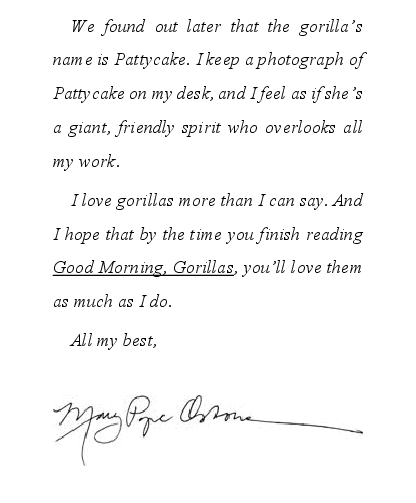 We found out later that the gorilla's
name is Pattycake. I keep a photograph of
Pattycake on my desk, and I feel as if she's
a giant, friendly spirit who overlooks all
my work.
I love gorillas more than I can say. And
I hope that by the time you finish reading
Good Morning, Gorillas, you'll love them
as much as I do.
All my best,
Mary Pope Osborne